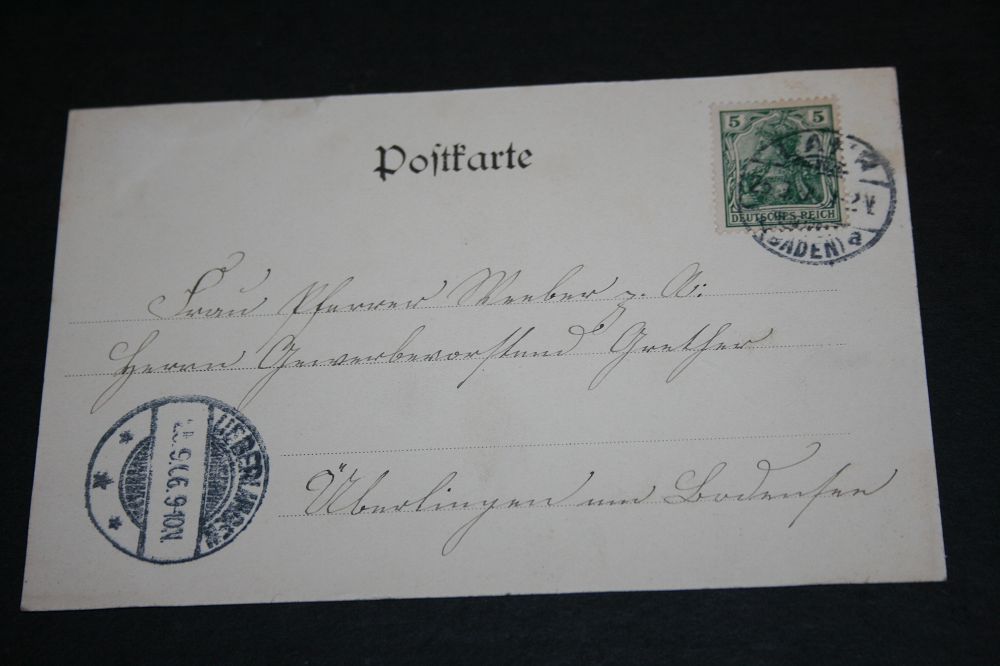 Postkarte
5 5
DEUTSCHES REICH
(BADEN) a
Frau Pfarrer Weeber z. A:
Herrn Gewerbevorstand Grether
Überlingen am Bodensee
UEBERLINGEN
9-10N.